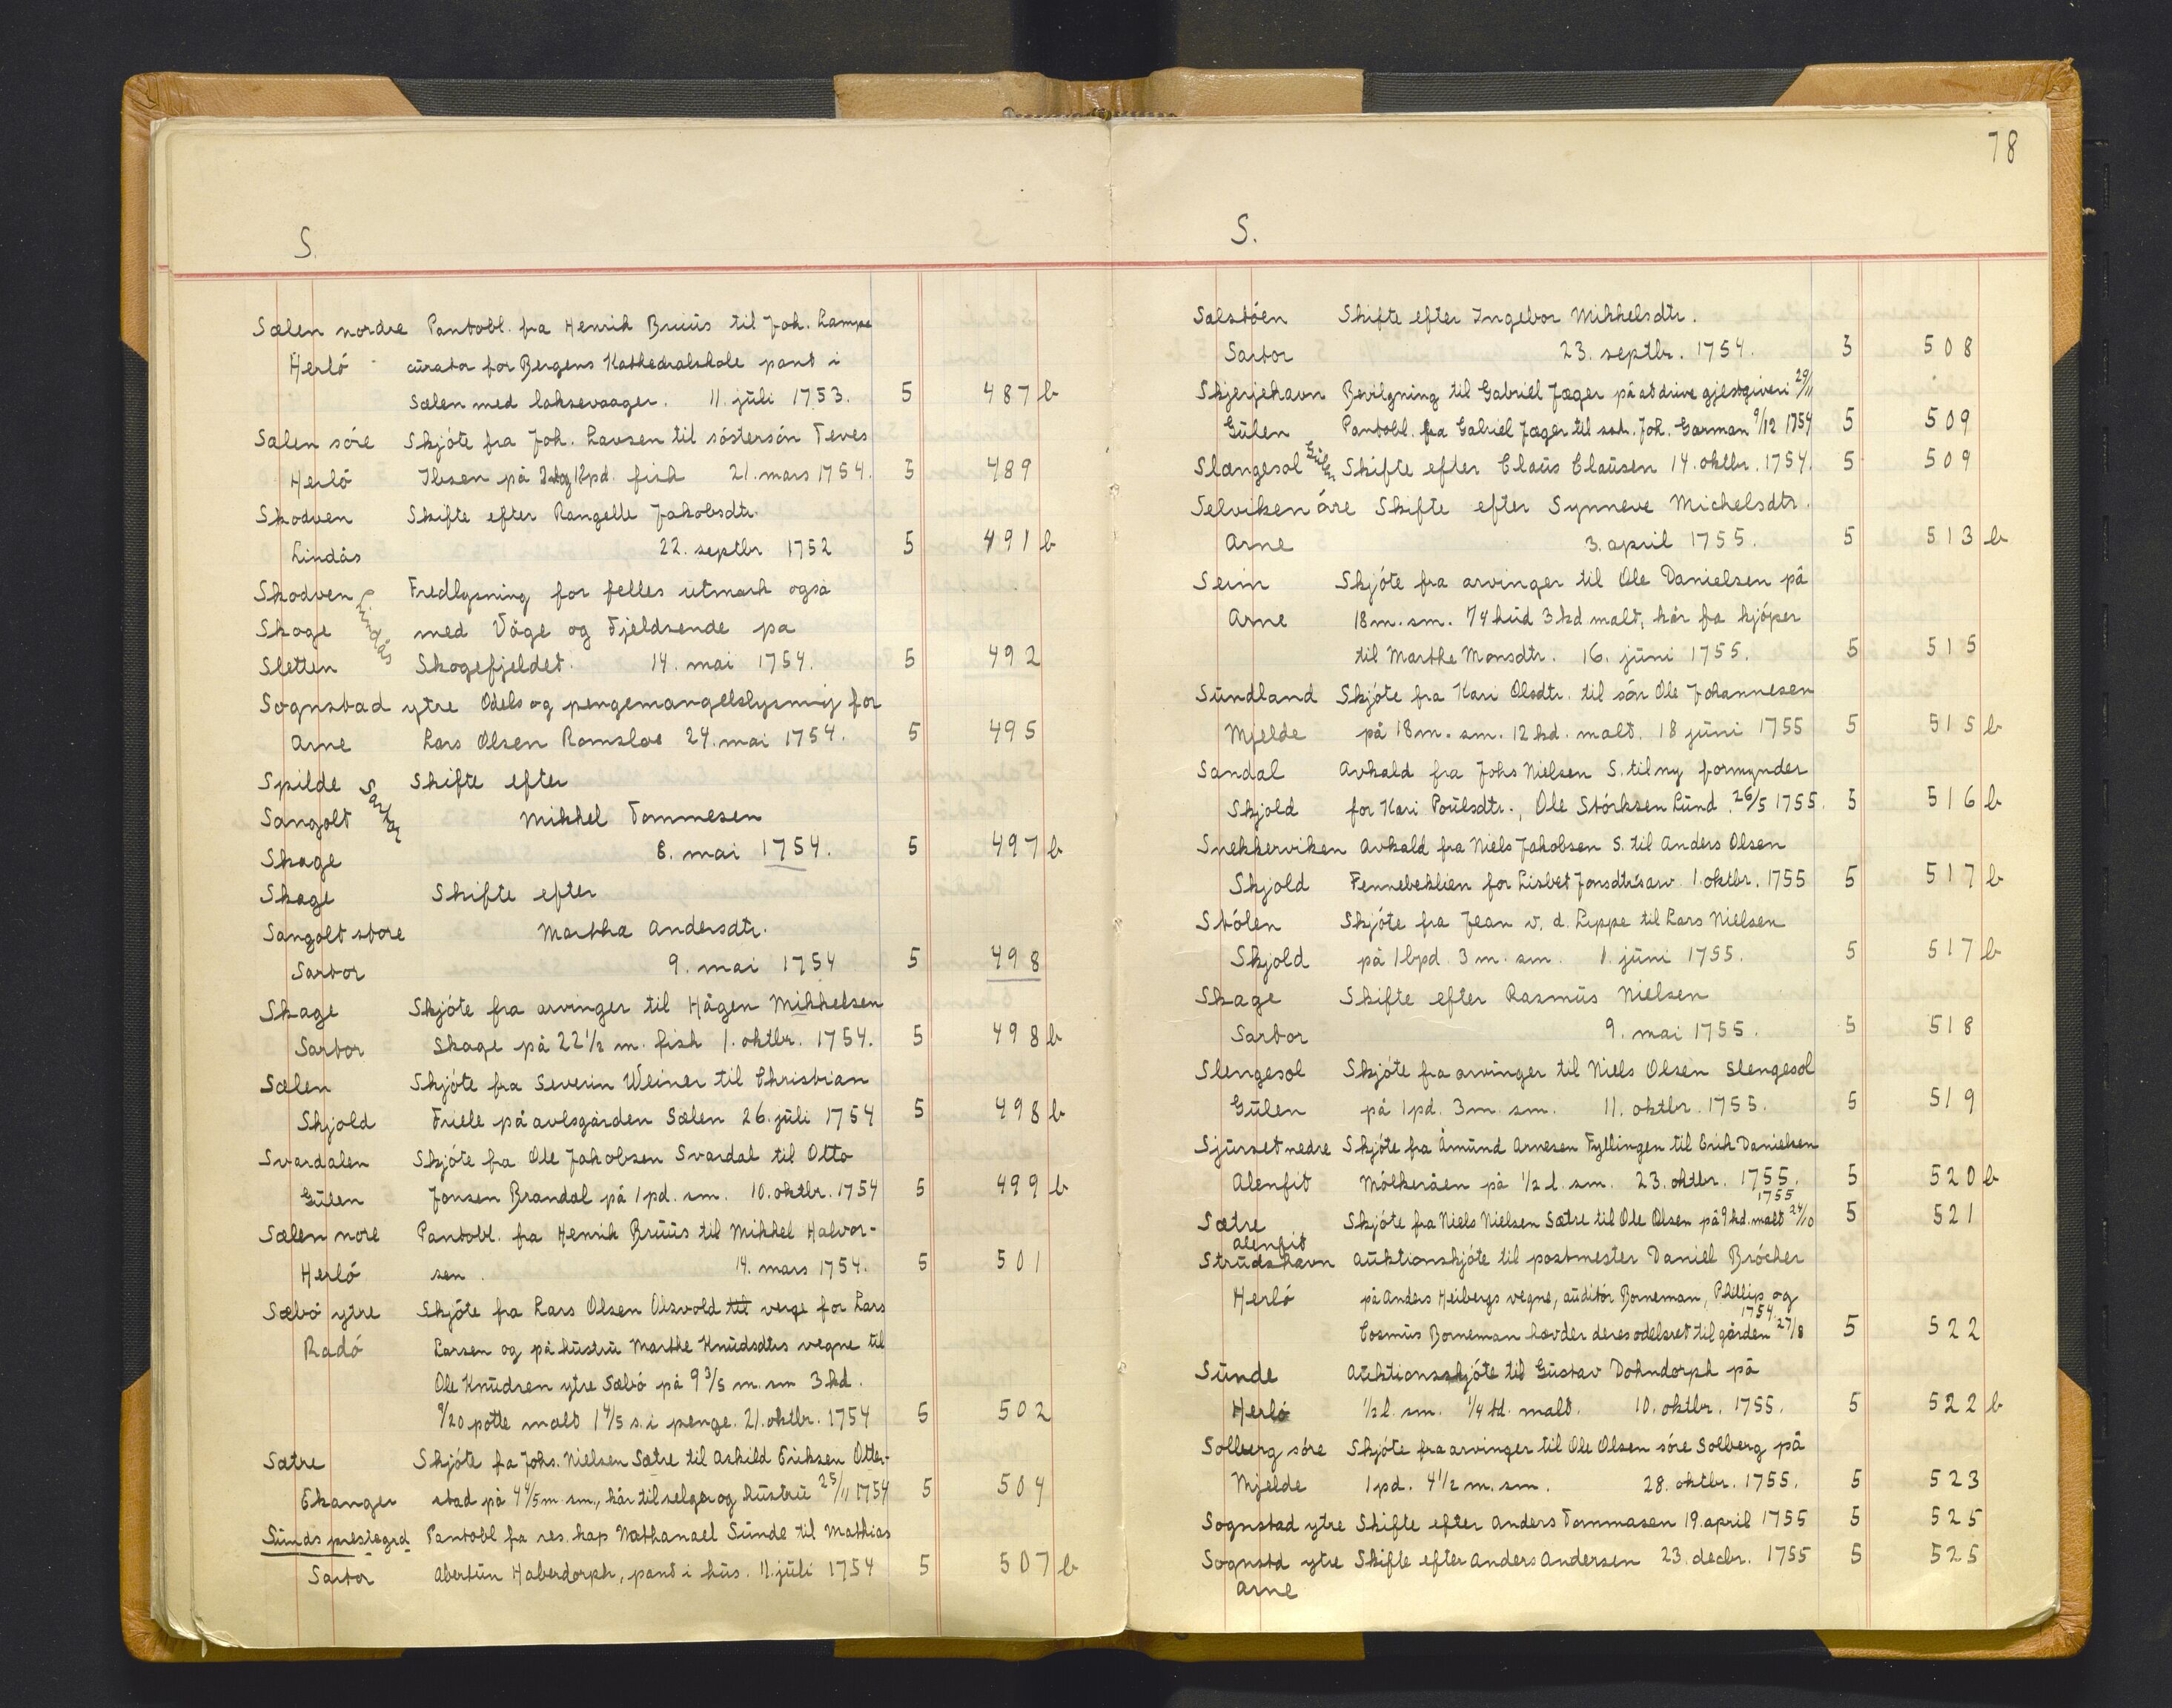 S.
Sælen nordre Pantobl. fra Henrik Bruüs til Joh. Lampe
Herlö curator for Bergens Kathedralskole pant i
Sælen med laksevaager. 11. jüli 1753. 5 487 b
Sælen söre Skjöte fra Joh. Lavsen til söstersön Teves
Herlö Ibsen på 2 og 12pd. fisk 21. mars 1754. 5 489
Skodven Skifte efter Rangelle Jakobsdtr.
Lindås 22. septbr 1752 5 491 b
Skodven Lindås Fredlysning for felles ütmark også
Skage med Våge og Fjeldsende pa
Sletten Skogefjeldet. 14. mai 1754. 5 492
Sognstad ytre Odels og pengemangelslysning for
Arne Lars Olsen Romsloe 24. mai 1754. 5 495
Spilde Sartor Skifte efter
Sangolt Mikkel Tommesen
Skage 8. mai 1754. 5 497 b
Skage Skifte efter
Sangolt store Martha Andersdtr.
Sartor 9. mai 1754 5 498
Skage Skjöte fra arvinger til Hågen Mikkelsen
Sartor Skage på 22 1/2 m. fisk 1. oktbr. 1754. 5 498 b
Sælen Skjöte fra Severin Weiner til Christian
Skjold Friele på avlsgården Sælen 26. jüli 1754 5 498 b
Svardalen Skjöte fra Ole Jakobsen Svardal til Otto
Gülen Jonsen Brandal på 1 pd. sm. 10. oktbr. 1754 5 499 b
Sælen nore Pantobl. fra Henrik Brüüs til Mikkel Halvor-
Herlö sen. 14. mars 1754. 5 501
Sæbö ytre Skjöte fra Lars Olsen Olsvold til verge for Lars
Radö Larsen og på hüstrü Marthe Knüdsdtrs vegne til
Ole Knüdsen ytre Sæbö på 9 3/5 m. sm 3 kd.
9/20 potte malt 1 4/5 s. i penge. 21. oktbr. 1754 5 502
Sætre Skjöte fa Johs. Nielsen Sætre til Askild Eriksen Otter-
Ekanger stad på 4 4/5 m sm., kår til selger og hüstrü 25/11 1754 5 504
Sünds prestegrd Pantobl fa res. kap Nathanael Sünde til Mathias
Sartor Abertün Haberdorph, pant i hüs. 11. jüli 1754 5 507 b
78
S.
Salstöen Skifte efter Ingebor Mikkelsdtr.
Sartor 23. septbr. 1754. 5 508
Skjerjehavn Bevilgning til Gabriel Jæger på at drive gjestgiveri 29/11
Gülen Pantobl. fra Gabriel Jæger til sst. Joh. Garman 9/12 1754 5 509
Slængesol Gülen Skifte efter Claüs Claüsen 14. oktbr. 1754. 5 509
Selviken öre Skifte efter Synneve Michelsdtr.
Arne 3. april 1755. 5 513 b
Seim Skjöte fra arvinger til Ole Danielsen på
Arne 18 m. sm. 74 hüd 3 kd malt, kår fra kjöper
til Marthe Monsdtr. 16. jüni 1755. 5 515
Sündland Skjöte fra Kari Olsdtr. til sön Ole Johannesen
Mjelde på 18 m. sm. 12 kd. malt. 18 jüni 1755 5 515 b
Sandal Avkald fra Johs Nielsen S. til ny formynder
Skjold for Kari Poülsdtr., Ole Störksen Lünd. 26/5 1755. 5 516 b
Snekkerviken Avkald fra Niels Jakobsen S. til Anders Olsen
Skjold Fennebeklien for Lisbet Jonsdtrs arv. 1. oktbr. 1755 5 517 b
Stölen Skjöte fra Jean v. d. Lippe til Lars Nielsen
Skjold på 1 bpd. 3 m. sm. 1. jüni 1755. 5 517 b
Skage Skifte efter Rasmüs Nielsen
Sartor 9. mai 1755. 5 518
Slengesol Skjöte fra arvinger til Niels Olsen Slengesol
Gülen på 1 pd. 3 m. sm. 11. oktbr. 1755. 5 519
Sjürset nedre Skjöte fra Åmünd Arnesen Fyllingen til Erik Danielsen
Alenfit Mölkeråen på 1/2 l. sm. 23. oktbr. 1755. 5 520 b
Sætre Skjöte fra Niels Nielsen Sætre til Ole Olsen på 9 kd. malt 24/10 1755 5 521
Alenfit
Strüdshavn Aüktionskjöte til postmester Daniell Bröcher
Herlö på Anders Heibergs vegne, aüditör Borneman, Phillip og
Cosmüs Borneman hævder deres odelsret til gården 27/8 1754. 5 522
Sünde Aüktionsskjöte til Güstav Dohndorph på
Herlö 1/2 l. sm. 1/4 td. malt. 10. oktbr. 1755. 5 522 b
Solberg söre Skjöte fra arvinger til Ole Olsen söre Solberg på
Mjelde 1 pd. 4 1/2 m. sm. 28. oktbr. 1755. 5 523
Sognstad ytre Skifte efter Anders Tommasen 19. april 1755 5 525
Sognstd ytre Skifte efter Anders Andersen 23. decbr. 1755 5 525
Arne